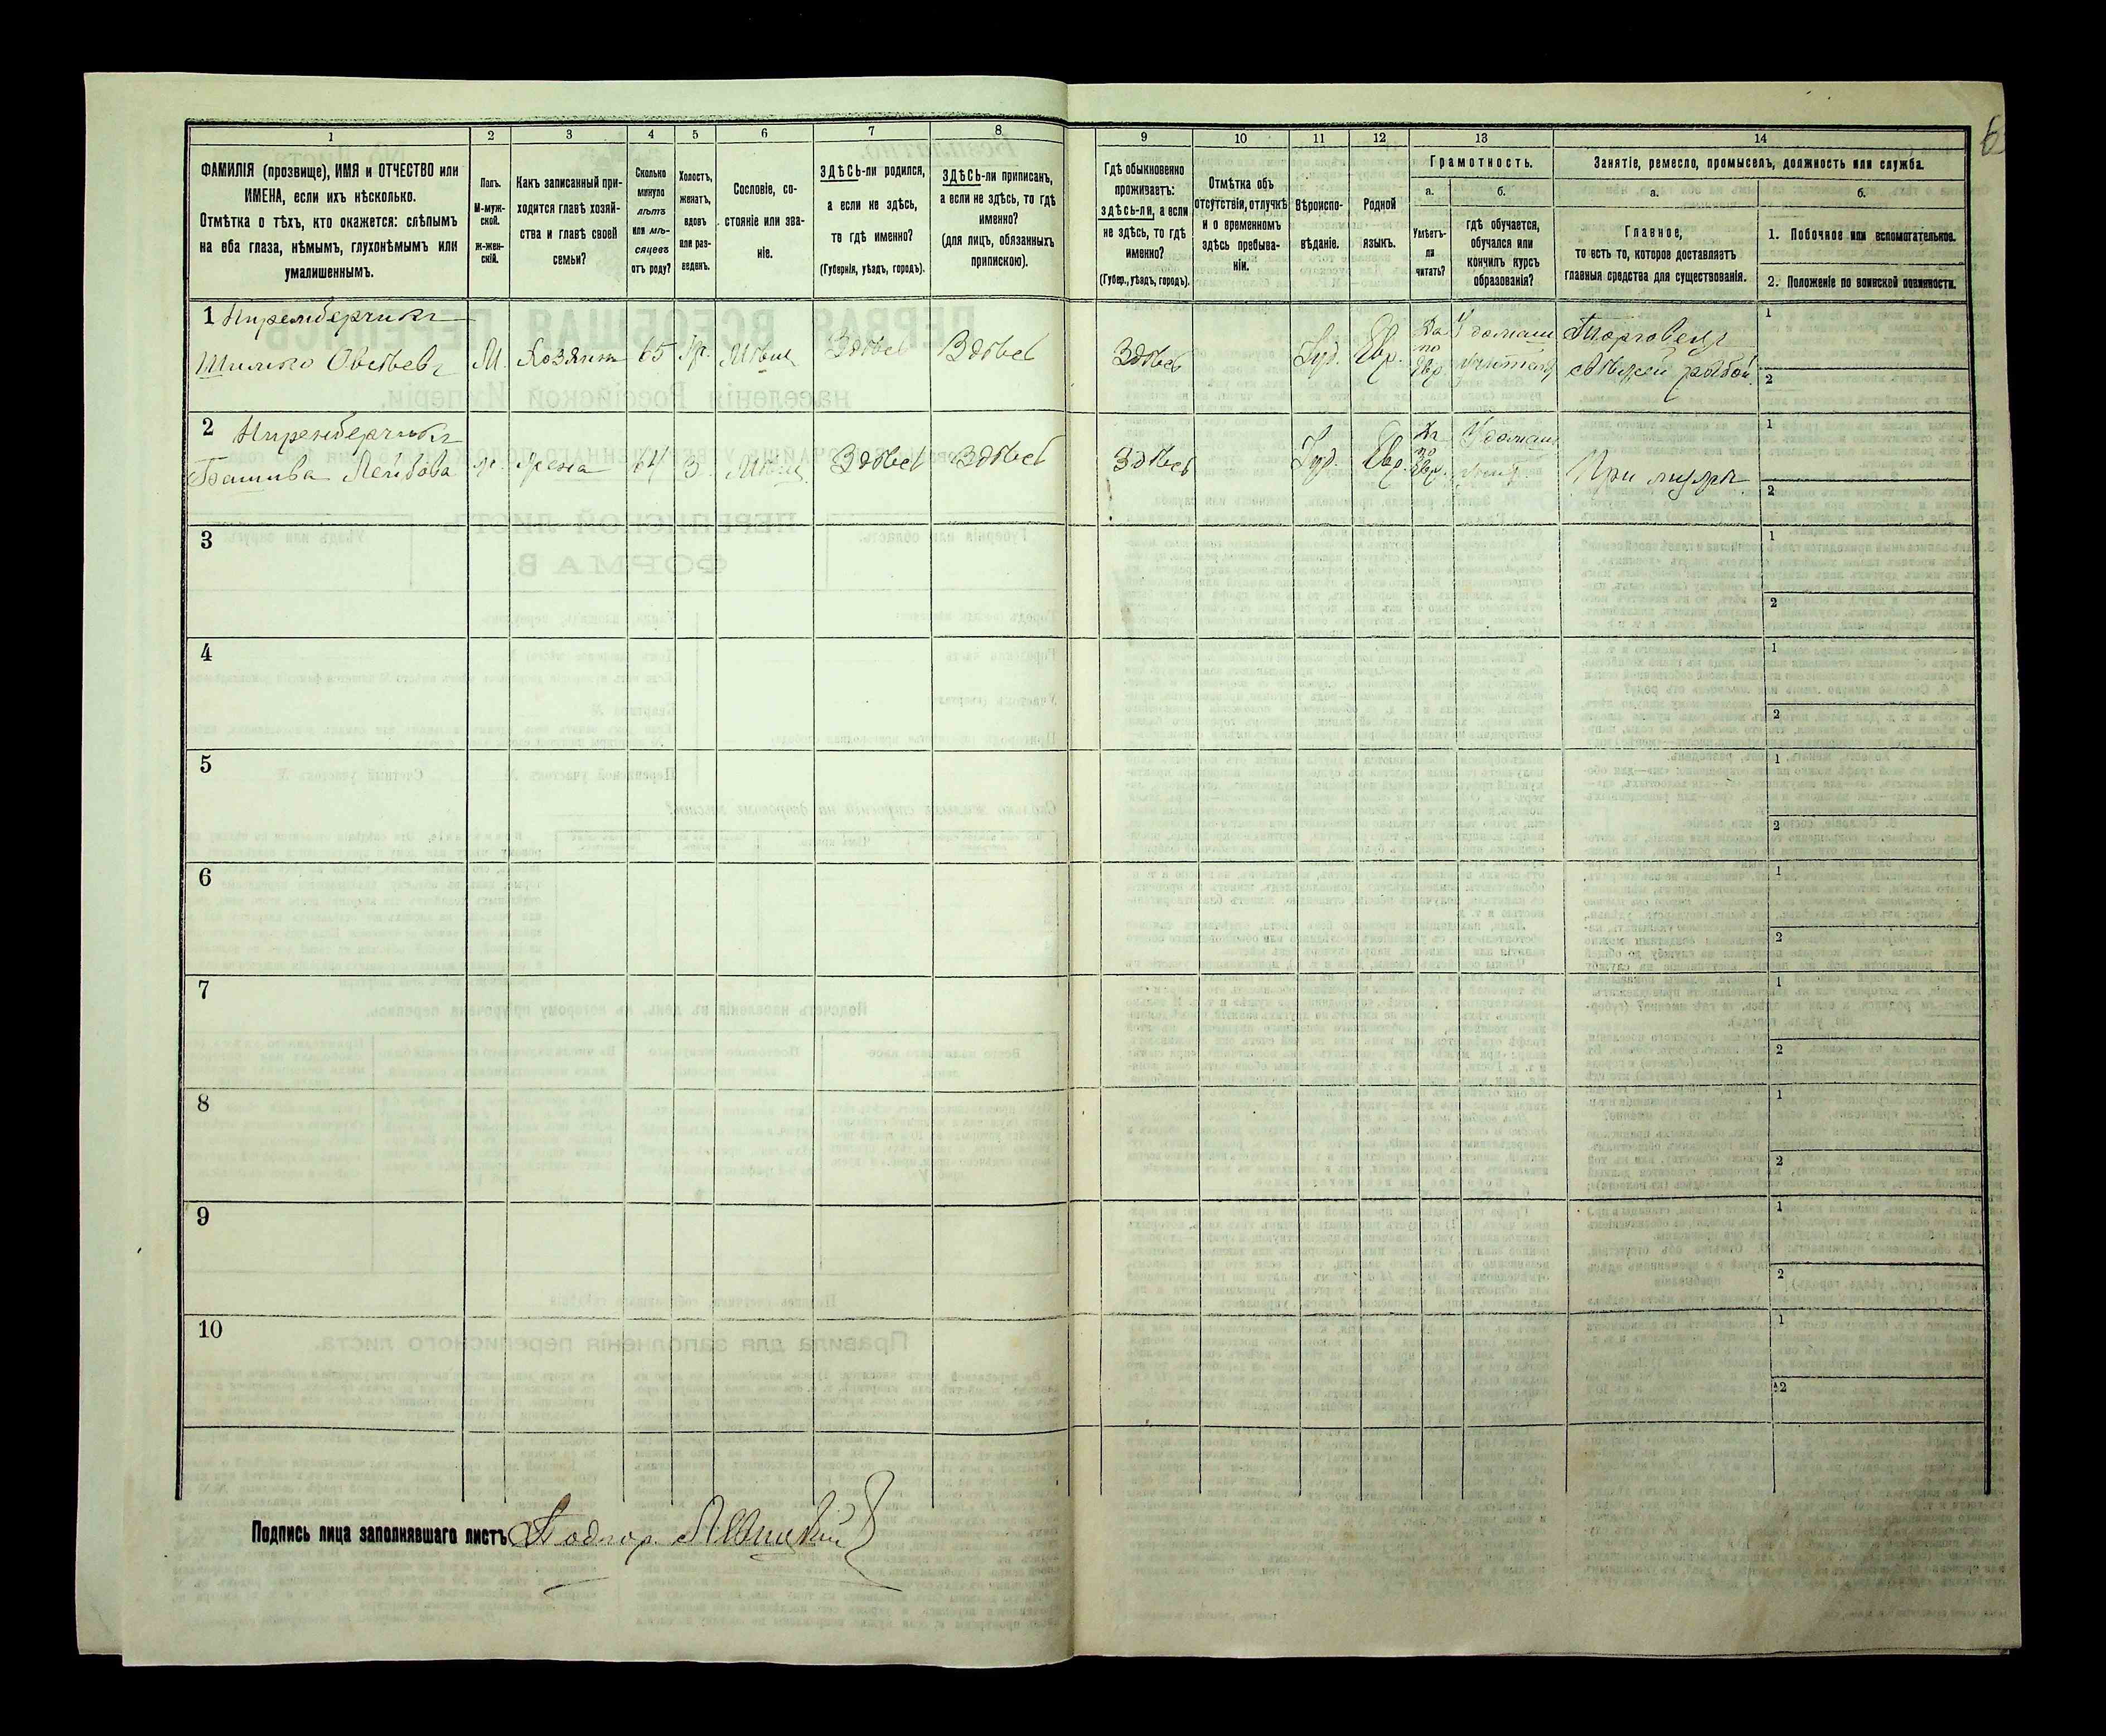 1 2 3 4 5 6 7 8 9 10 11 12 13 14
ФАМИЛІЯ (прозвище), ИМЯ и ОТЧЕСТВО или
ИМЕНА, если ихъ нѣсколько.
Отмѣтка о тѣхъ, кто окажется: слѣпымъ
на оба глаза, нѣмымъ, глухонѣмымъ или
умалишеннымъ.
Полъ.
М-муж-
ской.
Ж-жен-
скій.
Какъ записанный при-
ходится главѣ хозяй-
ства и главѣ своей
семьи?
Сколько
минуло
лѣтъ
или мѣ-
сяцевъ
отъ роду?
Холостъ,
женатъ,
вдовъ
или раз-
веденъ.
Сословіе, со-
стояніе или зва-
ніе.
ЗДѢСЬ-ли родился,
а если не здѣсь,
то гдѣ именно?
(Губернія, уѣздъ, городъ).
ЗДѢСЬ-ли приписанъ,
а если не здѣсь, то гдѣ
именно?
(для лицъ, обязанныхъ
припискою).
Гдѣ обыкновенно
проживаетъ:
здѣсь-ли, а если
не здѣсь, то гдѣ
именно?
(Губер., уѣздъ, городъ).
Отмѣтка объ
отсутствіи, отлучкѣ
и о временномъ
здѣсь пребыва-
ніи.
Вѣроиспо-
вѣданіе.
Родной
языкъ.
Грамотность.
а. б.
Умѣетъ-
ли
читать?
гдѣ обучается,
обучался или
кончилъ курсъ
образованія?
Занятіе, ремесло, промыселъ, должность или служба.
а. б.
Главное,
то есть то, которое доставляетъ
главныя средства для существованія.
1. Побочное или вспомогательное.
2. Положеніе по воинской повинности.
1
Шлиомо М. Хозяинъ 65 Жр. Мѣщ. Здѣсь Здѣсь Здѣсь Іуд. Евр. Да по Евр. У домаш. учителя Торговецъ свѣжей рыбой
1
2
2
Лейбова ж. Жена 64 З. Мѣщ. Здѣсь Здѣсь Здѣсь Іуд. Евр. Да по Евр. У домаш. учит. При мужѣ
1
2
3
1
2
4
1
2
5
1
2
6
1
2
7
1
2
8
1
2
9
1
2
10
1
2
Подпись лица заполнявшаго листъ